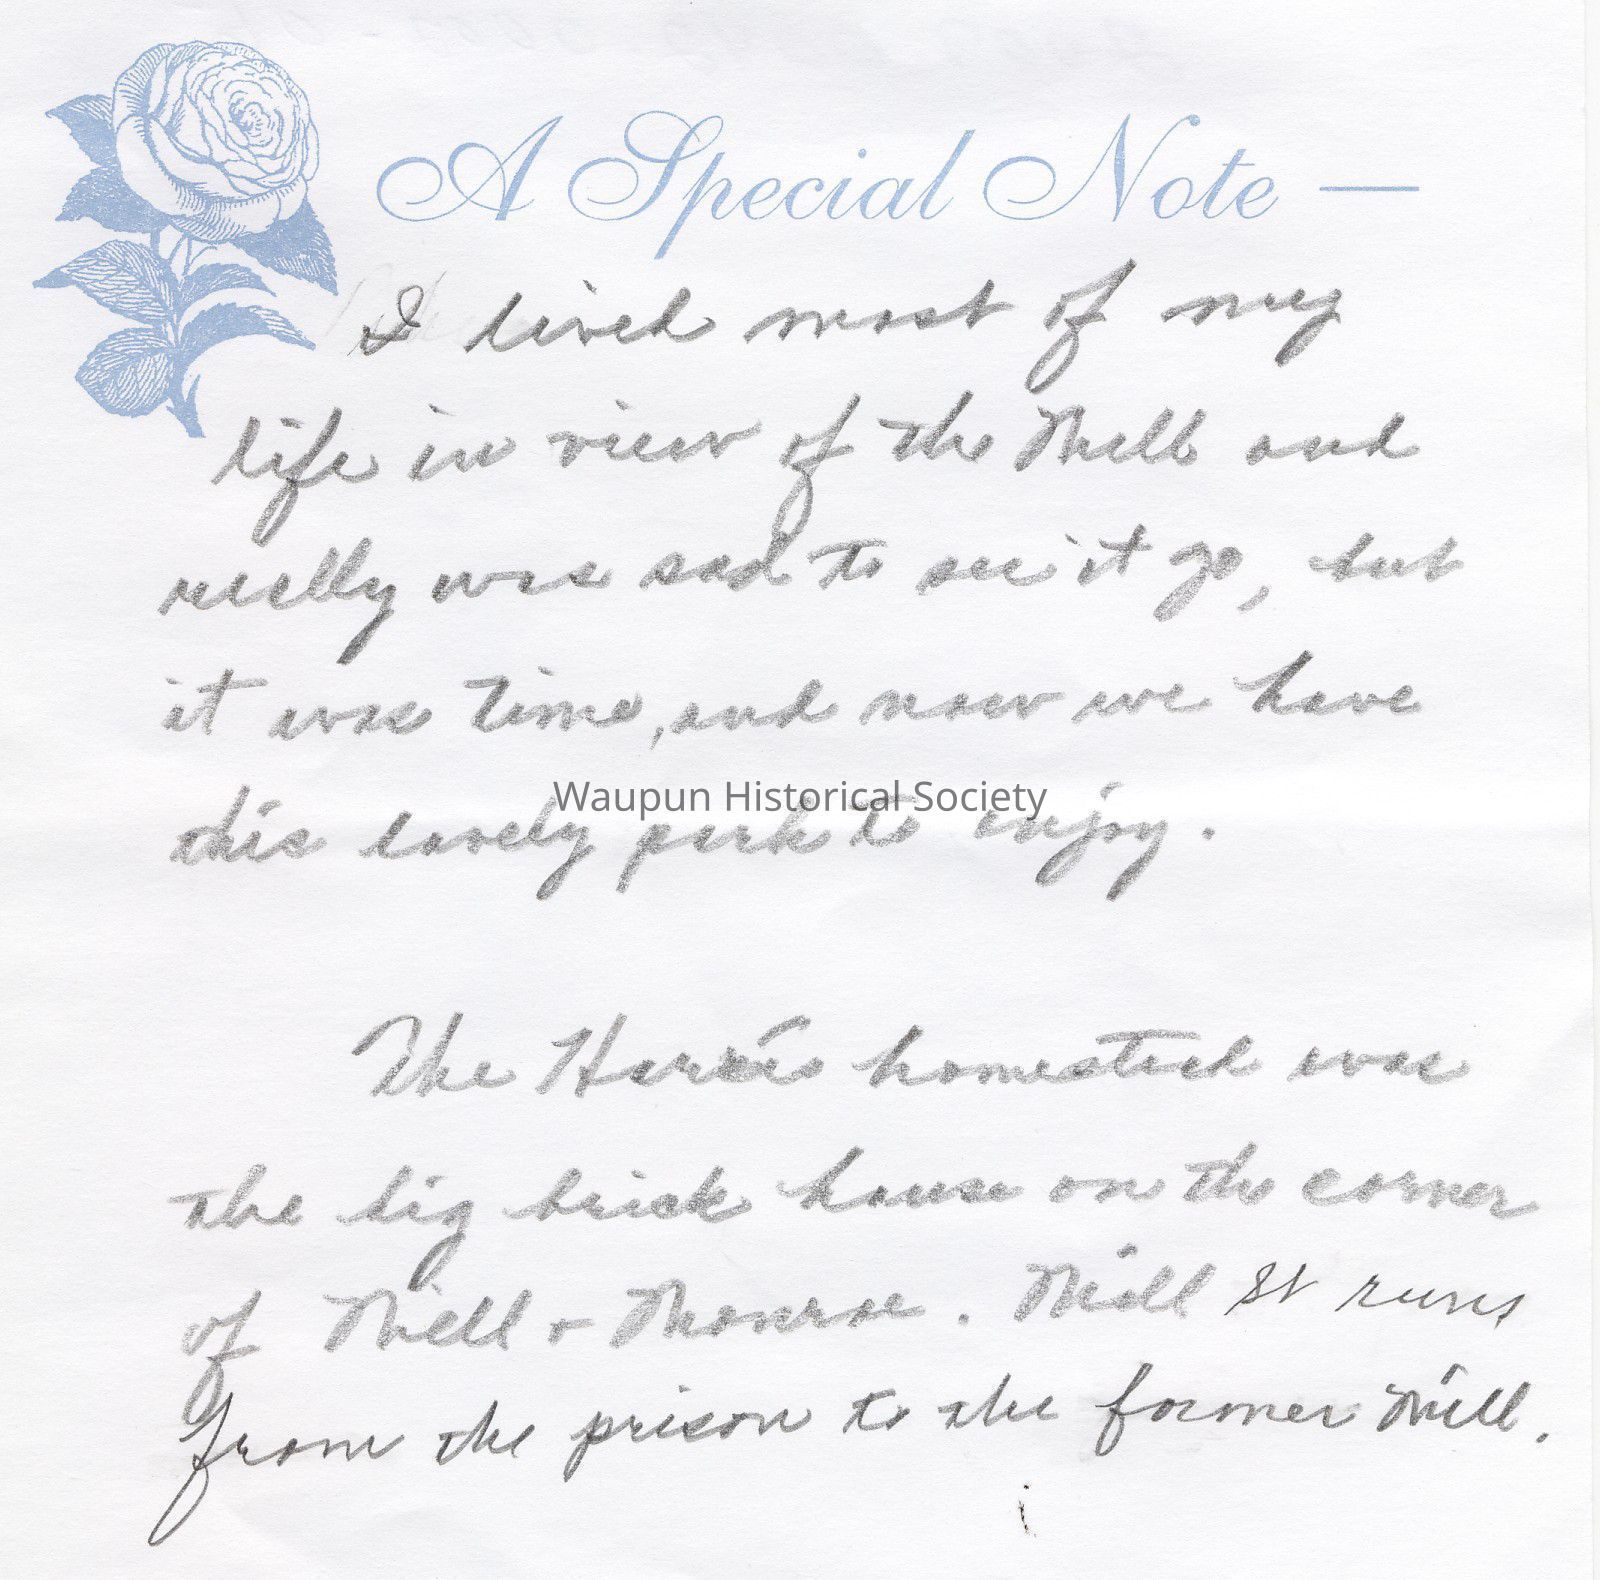 A Special Note —
I lived most of my
life in view of the Mill and
really was sad to see it go, but
it was time, and now we have
Waupun Historical Society
this lovely park to enjoy.
The Harris homestead was
the big brick house on the corner
of Mill + Monroe. Mill St runs
from the prison to the former Mill.